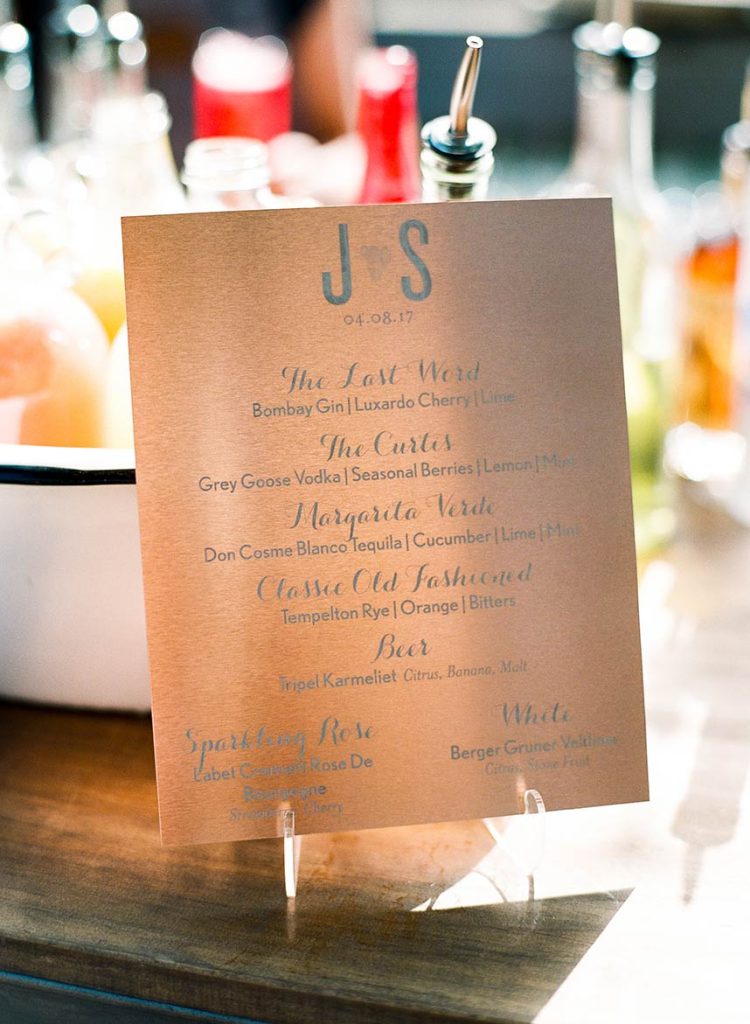 J S
04.08.17
The Last Word
Bombay Gin | Luxardo Cherry | Lime
The Curtis
Grey Goose Vodka | Seasonal Berries | Lemon | Mint
Margarita Verde
Don Cosme Blanco Tequila | Cucumber | Lime | Mint
Classic Old Fashioned
Tempelton Rye | Orange | Bitters
Beer
Tripel Karmeliet Citrus, Banana, Malt
Sparkling Rose
Labet Cremant Rose De
Bourgogne
Cherry
White
Berger Gruner Veltliner
Citrus, Stone Fruit